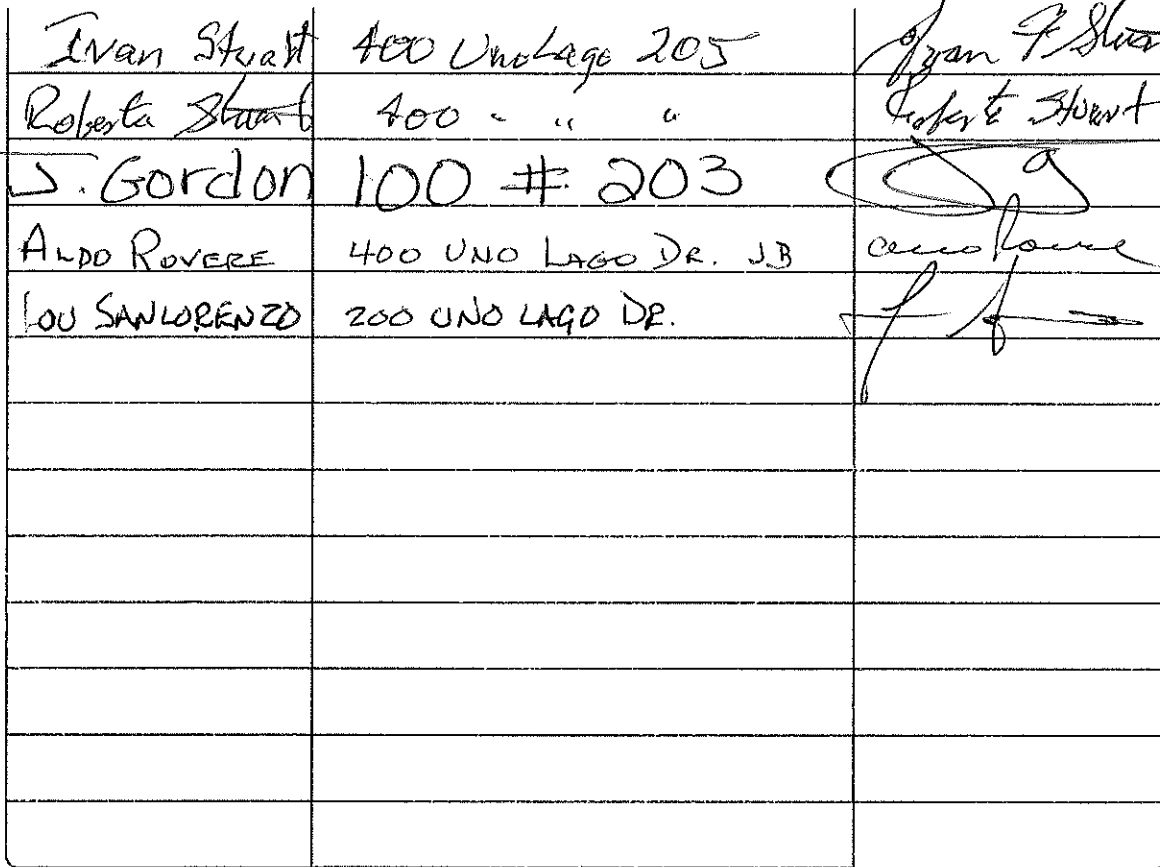 Ivan Stuart 400 Uno Lago 205 Ivan F Stuart
Roberta Stuart 400 " " " Roberta Stuart
J. Gordon 100 # 203 JG
ALDO ROVERE 400 UNO LAGO DR. J.B Aldo Rovere
LOU SANLORENZO 200 UNO LAGO DR.